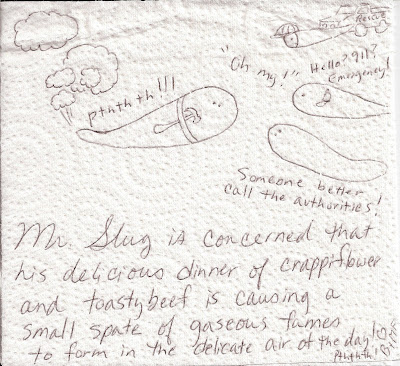 Rescue
"Oh my!"
Hello? 911?
Emergency!
pthththt!!!
Someone better
call the authorities!
Mr. Slug is concerned that
his delicious dinner of crappiflower
and toastybeef is causing a
small spate of gaseous fumes
to form in the delicate air of the day!
Pththth!